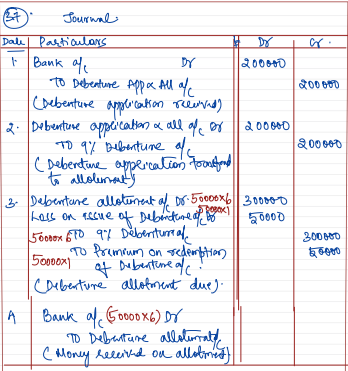 37. Journal
Date Particulars Dr Cr.
1. Bank a/c Dr 200000
To Debenture App & All a/c 200000
(Debenture application received)
2. Debenture application & all a/c Dr 200000
To 9% Debenture a/c 200000
(Debenture application transferred
to allotment)
3. Debenture allotment a/c Dr. 50000×6 300000
Loss on issue of Debenture a/c Dr 50000×1 50000
50000×6 To 9% Debenture a/c 300000
50000×1 To Premium on redemption 50000
of Debenture a/c.
(Debenture allotment due).
4 Bank a/c (50000×6) Dr
To Debenture allotment a/c
(Money received on allotment)